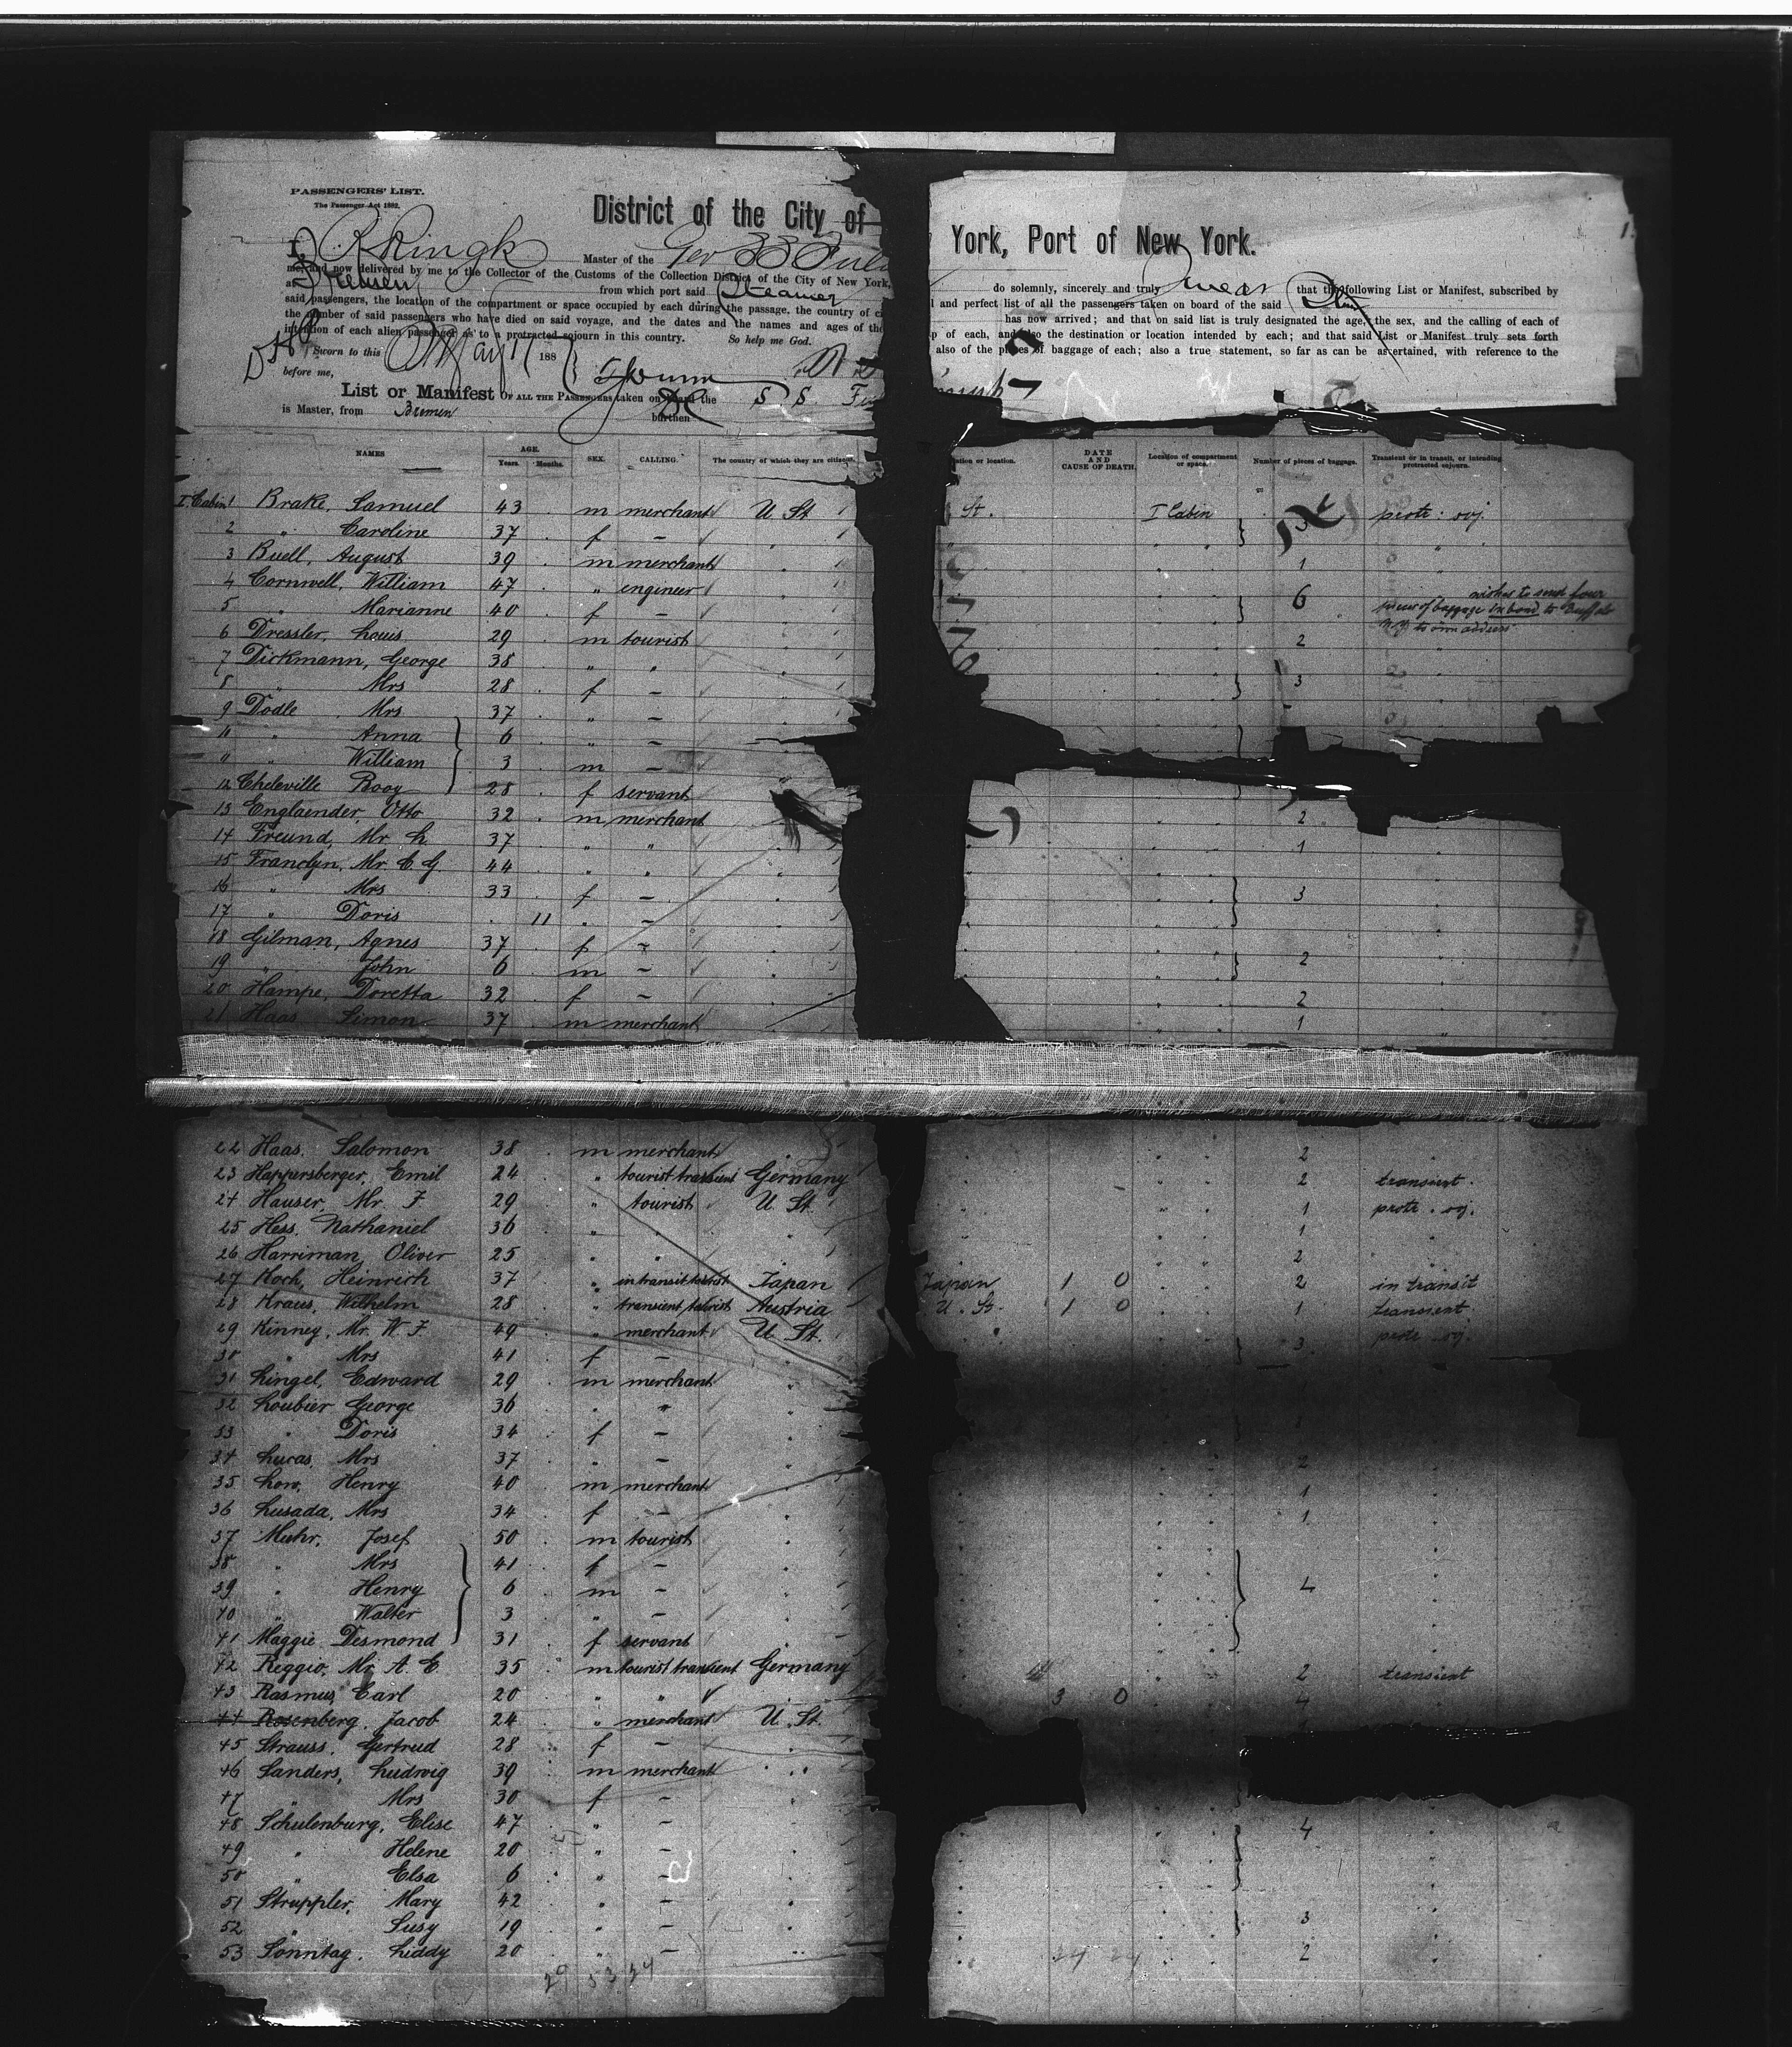 PASSENGERS' LIST.
The Passenger Act 1882.
District of the City of York, Port of New York.
I, R Ringk Master of the Ger SS Fulda do solemnly, sincerely and truly swear that the following List or Manifest, subscribed by
me, and now delivered by me to the Collector of the Customs of the Collection District of the City of New York, and perfect list of all the passengers taken on board of the said
at Bremen from which port said Steamer has now arrived; and that on said list is truly designated the age, the sex, and the calling of each of
said passengers, the location of the compartment or space occupied by each during the passage, the country of of each, and also the destination or location intended by each; and that said List or Manifest truly sets forth
the number of said passengers who have died on said voyage, and the dates and the names and ages of also of the pieces of baggage of each; also a true statement, so far as can be ascertained, with reference to the
intention of each alien passenger as to a protracted sojourn in this country. So help me God.
Sworn to this May 17 188
before me,
List or Manifest OF ALL THE PASSENGERS taken on board the S S
is Master, from Bremen burthen
NAMES AGE. Years. Months. SEX. CALLING. The country of which they are citizens or location. DATE AND CAUSE OF DEATH. Location of compartment or space. Number of pieces of baggage. Transient or in transit, or intending protracted sojourn.
I. Cabin 1 Brake, Samuel 43 m merchant U St St. I Cabin 3 protr: soj.
2 " Caroline 37 f -
3 Buell, August 39 m merchant 1
4 Cornwell, William 47 " engineer 6 wishes to send four
5 " Marianne 40 f - pieces of baggage in bond to Buffalo
N.Y. to own address
6 Dressler, Louis 29 m tourist 2
7 Dickmann, George 38 " "
8 " Mrs 28 f - 3
9 Dodle Mrs 37 " -
" " Anna 6 " -
" " William 3 m -
12 Cheleville Rooy 28 f servant
13 Englaender, Otto 32 m merchant 2
14 Freund, Mr L. 37 " " 1
15 Franclyn, Mr C. G. 44 " "
16 " Mrs 33 f - 3
17 " Doris 11 " -
18 Gilman, Agnes 37 f -
19 " John 6 m - 2
20 Hampe, Doretta 32 f - 2
21 Haas Simon 37 m merchant 1
22 Haas, Salomon 38 m merchant 2
23 Happersberger, Emil 24 " tourist transient Germany 2 transient.
24 Hauser, Mr. F. 29 " tourist U. St. 1 protr. soj.
25 Hess, Nathaniel 36 " " 1
26 Harriman, Oliver 25 " " 2
27 Koch, Heinrich 37 " in transit tourist Japan Japan 1 0 2 in transit
28 Kraus, Wilhelm 28 " transient tourist Austria U. St. 1 0 1 transient
29 Kinney, Mr. W. F. 49 " merchant U St. 3 protr. soj.
30 " Mrs 41 f -
31 Lingel, Edward 29 m merchant
32 Loubier George 36 " "
33 " Doris 34 f -
34 Lucas, Mrs 37 " - 2
35 Low, Henry 40 m merchant 1
36 Lusada, Mrs 34 f - 1
37 Muhr, Josef 50 m tourist
38 " Mrs 41 f -
39 " Henry 6 m - 4
40 " Walter 3 " -
41 Maggie Desmond 31 f servant
42 Reggio, Mr. A. E. 35 m tourist transient Germany 2 transient
43 Rasmus, Carl 20 " " 3 0 4
44 Rosenberg, Jacob 24 " merchant U. St.
45 Strauss, Gertrud 28 f -
46 Sanders, Ludwig 39 m merchant
47 " Mrs 30 f -
48 Schulenburg, Elise 47 " - 4
49 " Helene 20 " -
50 " Elsa 6 " -
51 Struppler, Mary 42 " -
52 " Susy 19 " - 3
53 Sonntag, Liddy 20 " - 2
29 53 24